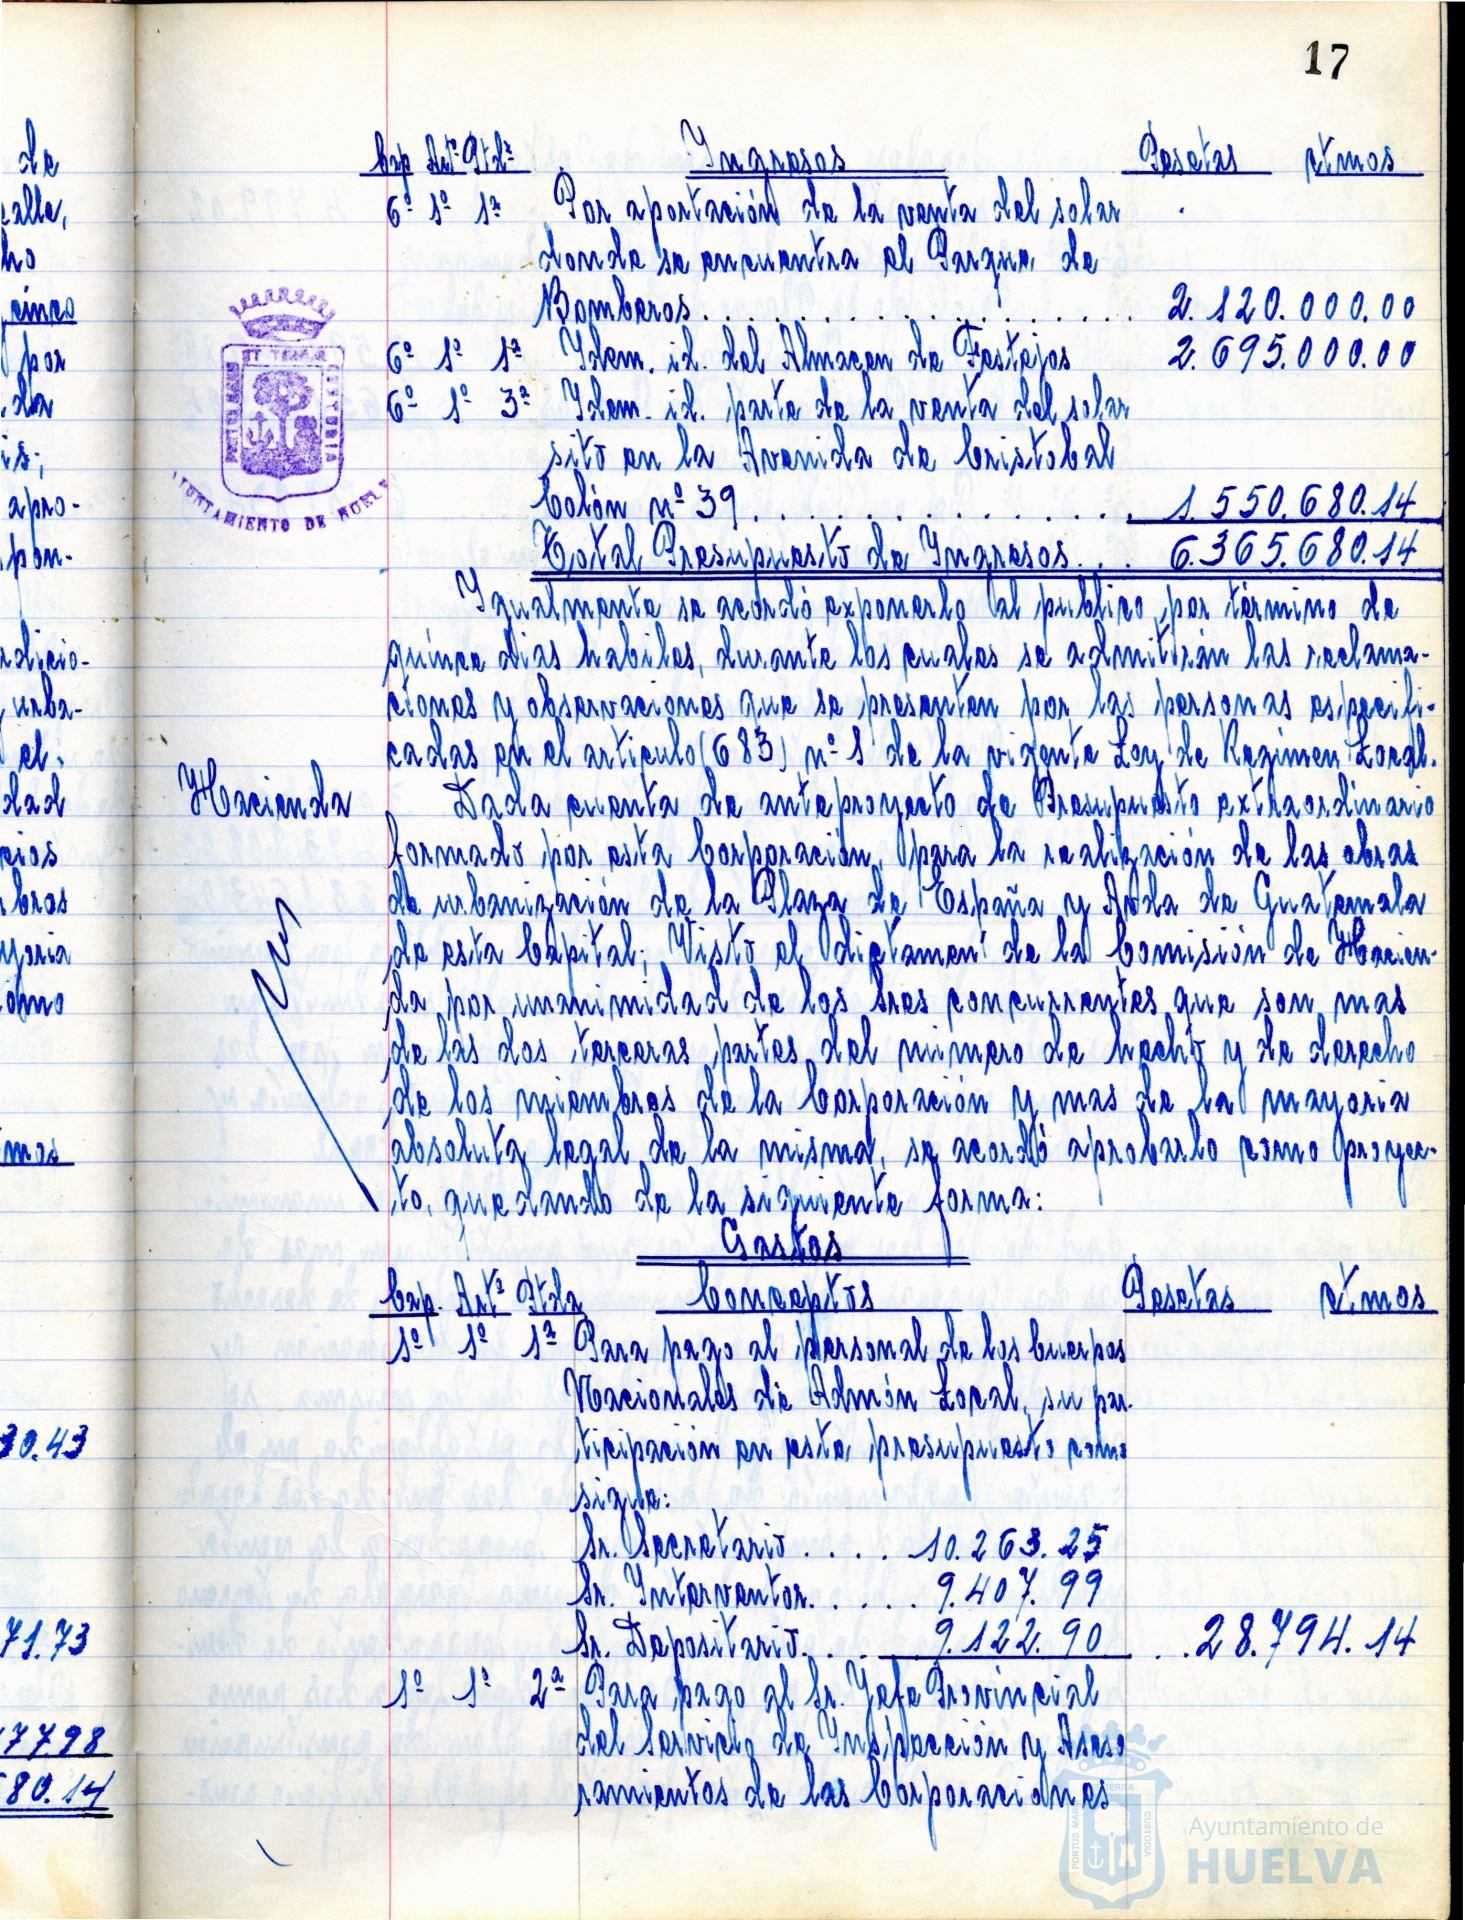 17
de
calle,
ho
cinco
por
da
is;
apro-
pon-
adicio-
urba-
el
dad
cios
bras
yoria
como
mos
30.43
71.73
7798
80.14
Cap Artº Ptdª Ingresos Pesetas ctmos
6º 1º 1ª Por aportación de la venta del solar
donde se encuentra el Parque de
Bomberos . . . . . . . . . . 2.120.000.00
6º 1º 1ª Idem. id. del Almacen de Festejos 2.695.000.00
6º 1º 3ª Idem. id. parte de la venta del solar
sito en la Avenida de Cristobal
Colón nº 39 . . . . . . . . . . 1.550.680.14
Total Presupuesto de Ingresos . . . 6.365.680.14
ET TERRAE CUSTODIA
PORTUS MARIS
AYUNTAMIENTO DE HUELVA
Igualmente se acordó exponerlo al publico por término de
quince dias habiles, durante los cuales se admitirán las reclama-
ciones y observaciones que se presenten por las personas especifi-
cadas en el articulo (683) nº 1 de la vigente Ley de Regimen Local.
Hacienda
Dada cuenta de anteproyecto de Presupuesto extraordinario
formado por esta Corporación, para la realización de las obras
de urbanización de la Plaza de España y Avda de Guatemala
de esta Capital; Visto el dictamen de la Comisión de Hacien-
da por unanimidad de los Sres concurrentes que son mas
de las dos terceras partes del número de hecho y de derecho
de los miembros de la Corporación y mas de la mayoria
absoluta legal de la misma, se acordó aprobarlo como proyec-
to, quedando de la siguiente forma:
Gastos
Cap. Artº Ptda Conceptos Pesetas ctmos
1º 1º 1ª Para pago al personal de los Cuerpos
Nacionales de Admón Local, su par
ticipación en este presupuesto como
sigue:
Sr. Secretario . . . . 10.263.25
Sr. Interventor . . . . . 9.407.99
Sr. Depositario . . . 9.122.90 . . 28.794.14
1º 1º 2ª Para pago al Sr. Jefe Provincial
del Servicio de Inspección y Aseso
ramientos de las Corporaciones
PORTUS MARIS ET TERRAE CUSTODIA
Ayuntamiento de
HUELVA